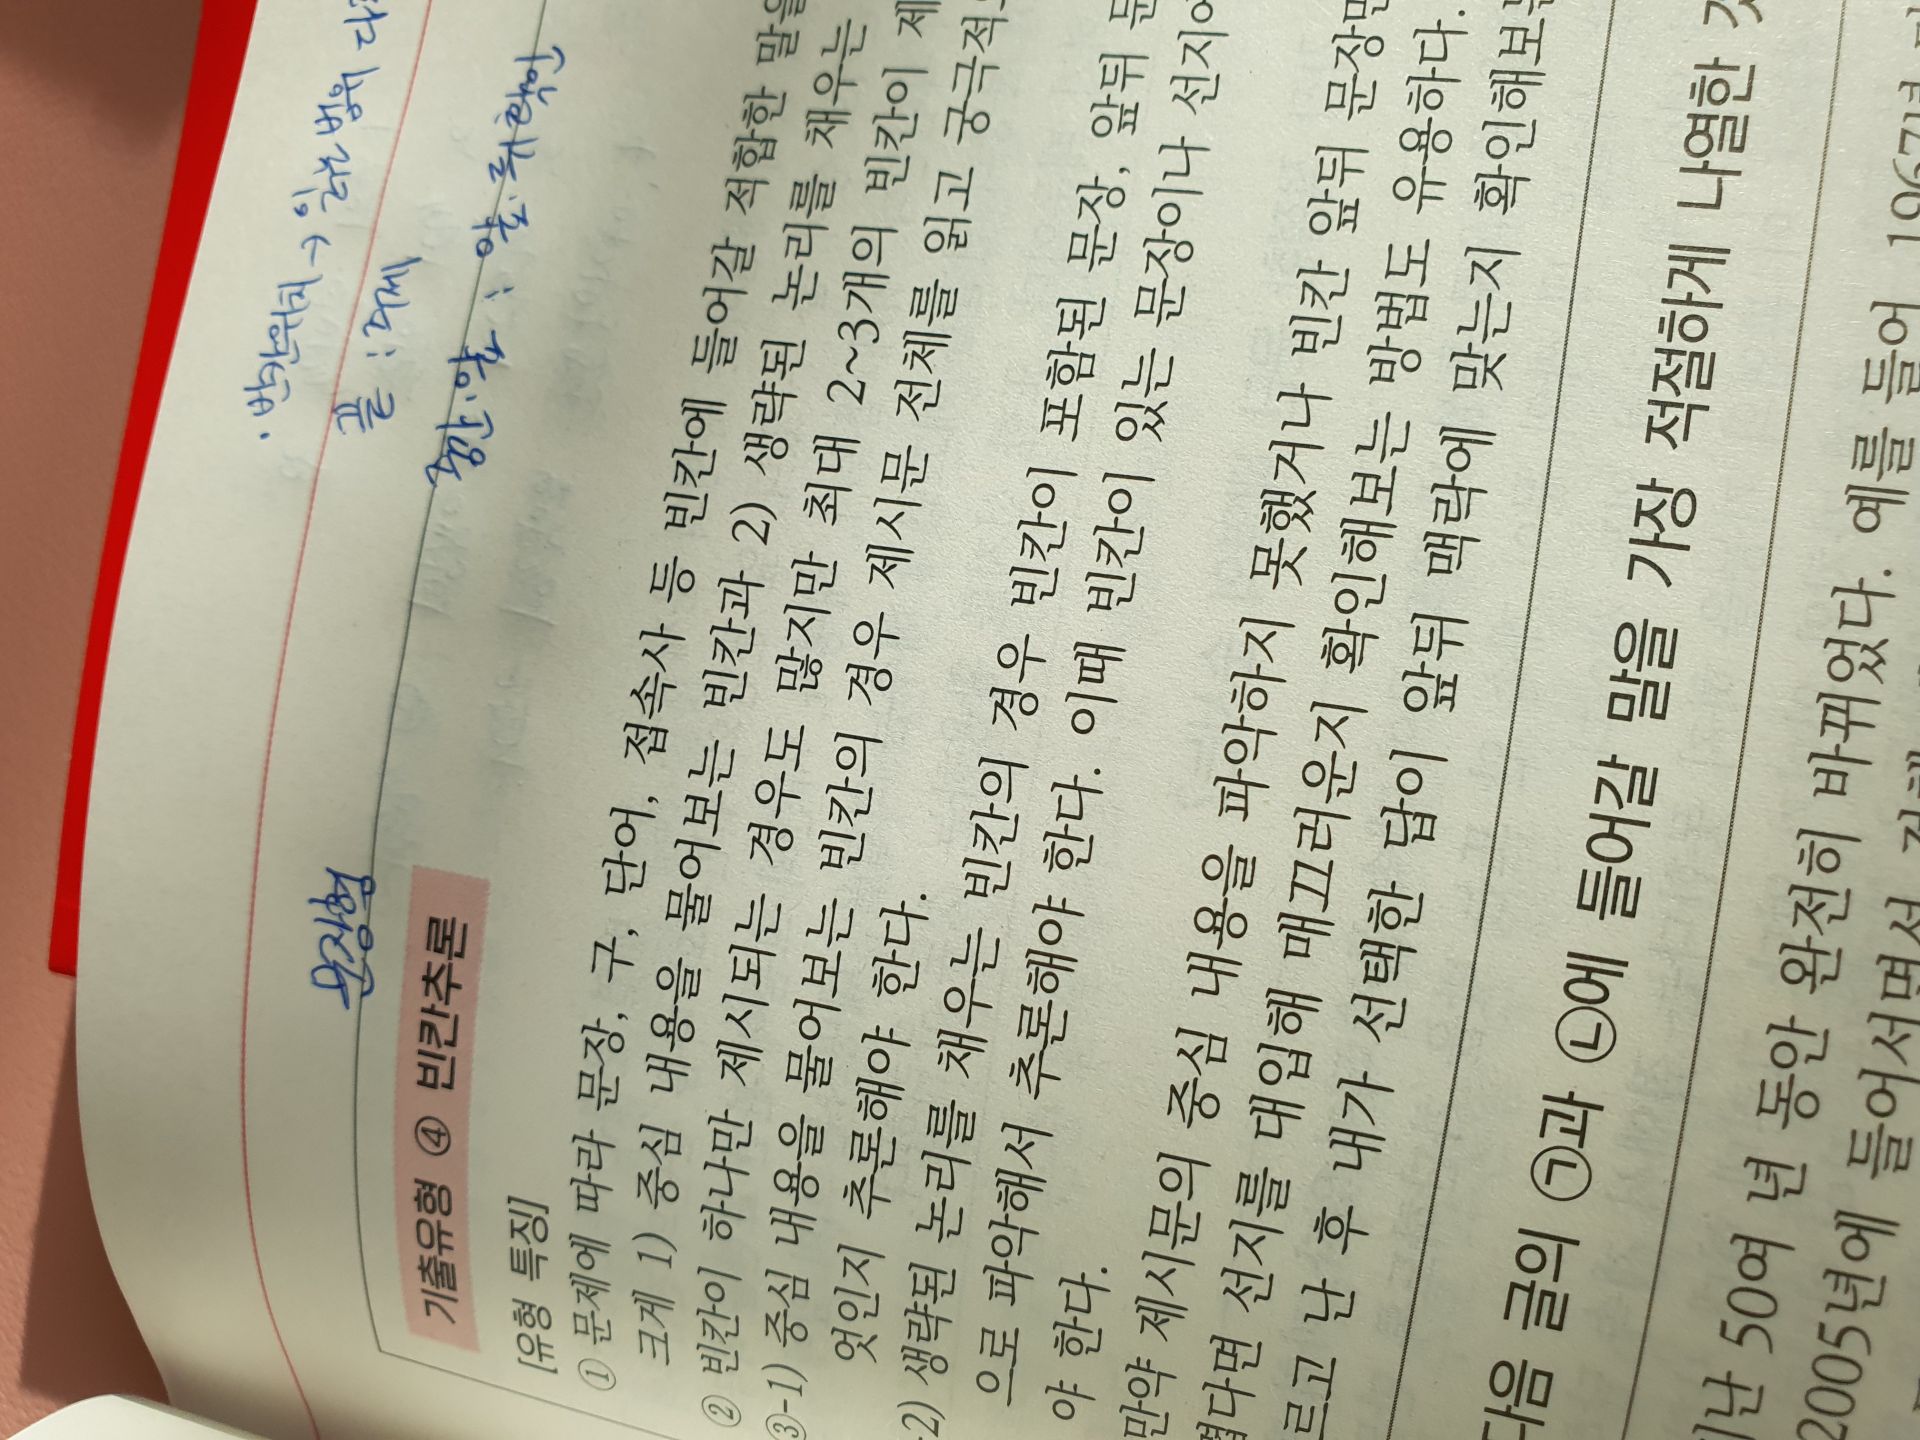 · 빈칸위치 → 읽는 범위 다
끝 : 주제
중간·앞 : 앞·뒤 확인
문장형
기출유형 ④ 빈칸추론
[유형 특징]
① 문제에 따라 문장, 구, 단어, 접속사 등 빈칸에 들어갈 적합한 말을
크게 1) 중심 내용을 물어보는 빈칸과 2) 생략된 논리를 채우는
② 빈칸이 하나만 제시되는 경우도 많지만 최대 2~3개의 빈칸이 제
③-1) 중심 내용을 물어보는 빈칸의 경우 제시문 전체를 읽고 궁극적
엇인지 추론해야 한다.
-2) 생략된 논리를 채우는 빈칸의 경우 빈칸이 포함된 문장, 앞뒤 문
으로 파악해서 추론해야 한다. 이때 빈칸이 있는 문장이나 선지에
야 한다.
만약 제시문의 중심 내용을 파악하지 못했거나 빈칸 앞뒤 문장만
렵다면 선지를 대입해 매끄러운지 확인해보는 방법도 유용하다.
르고 난 후 내가 선택한 답이 앞뒤 맥락에 맞는지 확인해보는
다음 글의 ㉠과 ㉡에 들어갈 말을 가장 적절하게 나열한 것
지난 50여 년 동안 완전히 바뀌었다. 예를 들어 1967년
2005년에 들어서면서